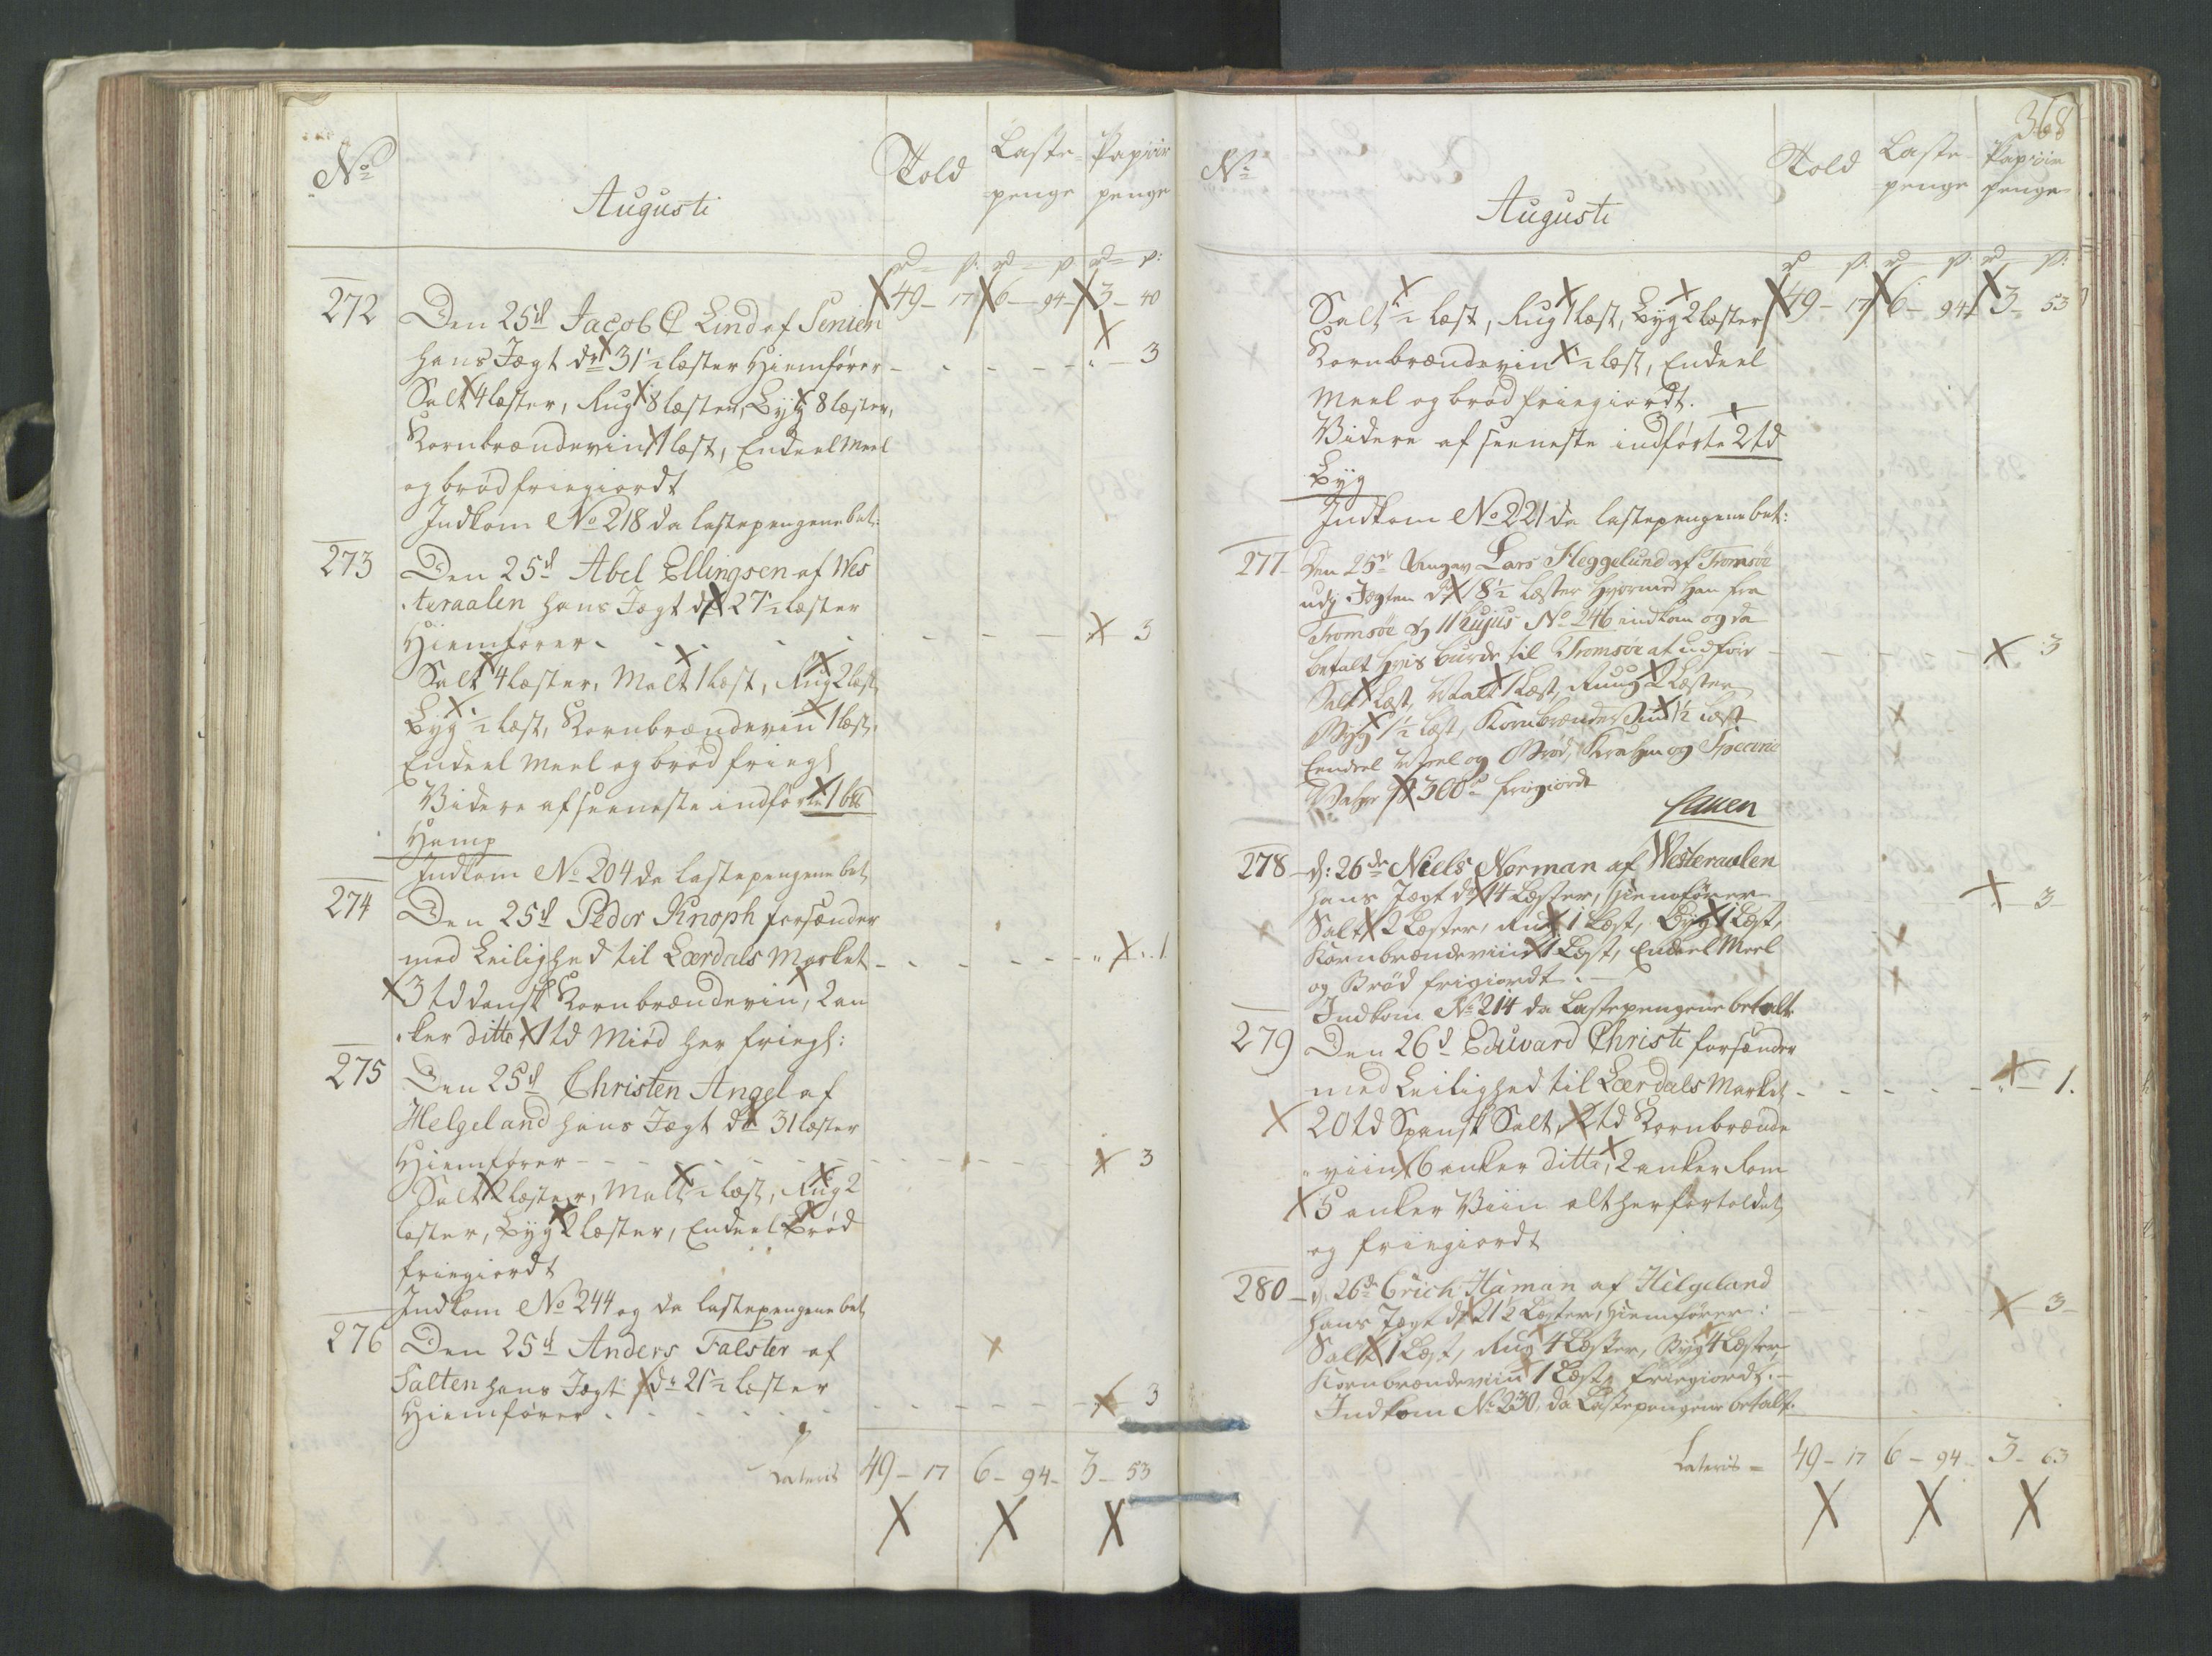 No
Augusti
Told
Laste-
penge
Papiir
penge
rd s: rd s rd s:
49 - 17 6 - 94 - 3 - 40
272
Den 25d Jacob C Lind af Senien
hans Jægt dr 31 1/2 læster Hiemfører - - - - - 3
Salt 4 læster, Rug 8 læster, Byg 8 læster,
Kornbrændeviin 1 læst, Endeel Meel
og brød friegiordt
Indkom No 218 da lastepengene bet:
273
Den 25d Abel Ellingsen af Wes
teraalen hans Jægt dr 27 1/2 læster
Hiemfører - - - - 3
Salt 4 læster, Malt 1 læst, Rug 2 læst,
Byg 1/2 læst, Kornbrændeviin 1 læst,
Endeel Meel og brød friegt
Videre af seeneste indførte 1
Hamp
Indkom No 204 da lastepengene bet
274
Den 25d Peder Knoph forsænder
med Leilighed til Lærdals Marked - - - - 1
3 td dansk Kornbrændeviin, 2 an
ker ditto, 1 td Miød her friegt:
275
Den 25d Christen Angel af
Helgeland hans Jægt dr 31 læster
Hiemfører - - - - 3
Salt 2 læster, Malt 1/2 læst, Rug 2
læster, Byg 2 læster, Endeel Brød
friegiordt
Indkom No 244 og da lastepengene bet
276
Den 25d Anders Falster af
Salten hans Jægt dr 21 1/2 læster
Hiemfører - - - - 3
Lateris 49 - 17 6 - 94 - 3 - 53
368
No
Augusti
Told
Laste-
penge
Papiir
penge
rd s: rd s: rd s:
49 - 17 6 - 94 3 - 53
Salt 1/2 læst, Rug 1 læst, Byg 2 læster
Kornbrændeviin 1/2 læst, Endeel
Meel og brød friegiordt.
Videre af seeneste indførte 2 td
Byg
Indkom No 221 da lastepengene bet:
277
Den 25de Lars Heggelund af Tromsøe
udj Jægten dr 18 1/2 Læster hvormed han fra
Tromsøe d 11 hujus No 246 indkom og da
betalt hvis burde til Tromsøe at udføre - - - 3
Salt 1 Læst, Malt 1 Læst, Ruug 2 Læster
Byg 1 1/2 Læst, Kornbrændeviin 1/2 Læst
Eendeel Meel og Brød, Krahm og Specerie
Vahre 300 rd friegiordt
278
d: 26de Niels Norman af Westeraalen
hans Jægt dr 14 Læster, hiemfører - 3
Salt 2 Læster, Rug 1 Læst, Byg 1 Læst,
Kornbrændeviin 1 Læst, Endeel Meel
og Brød frigiordt. -
Indkom No 214 da Lastepengene betalt
279
Den 26d Eduvard Christi forsænder
med Leilighed til Lærdals Marked - - - - 1.
20 td Spansk Salt, 2 td Kornbrænde
viin, 6 anker ditto, 2 anker Rom
5 anker Viin alt her fortoldet
og friegiordt
280
d. 26de Erich Haman af Helgeland
hans Jægt dr 21 1/2 Læster, hiemfører: - - 3
Salt 1 Læst, Rug 4 Læster, Byg 4 Læster,
Kornbrændeviin 1 Læst, friegiordt. -
Indkom No 230, da Lastepengene betalt.
Lateris - 49 - 17 6 - 94 - 3 - 63